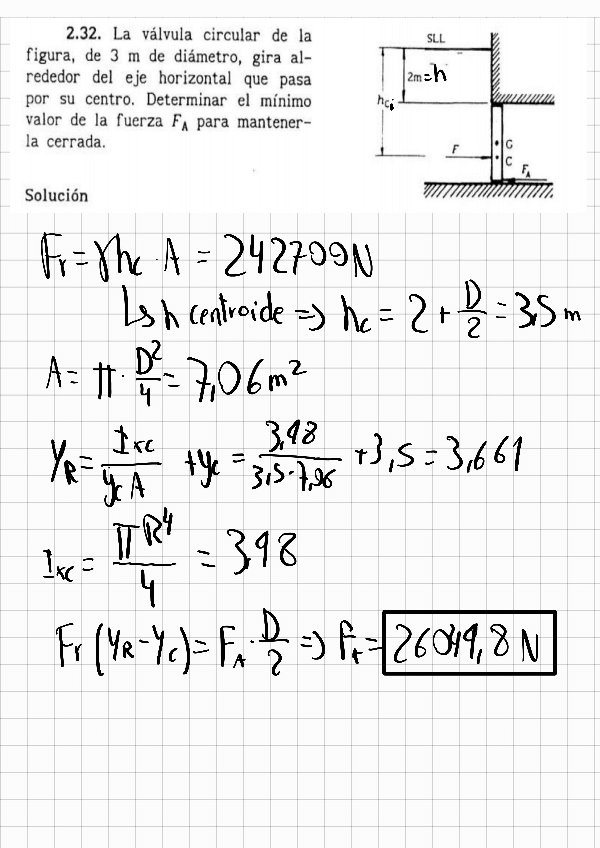 2.32. La válvula circular de la
figura, de 3 m de diámetro, gira al-
rededor del eje horizontal que pasa
por su centro. Determinar el mínimo
valor de la fuerza F_A para mantener-
la cerrada.
Solución
SLL
2m = h
h_ci
F
G
C
F_A
Fr = γh_c · A = 242709 N
↳ h centroide => h_c = 2 + D/2 = 3,5 m
A = π · D²/4 = 7,06 m²
Y_R = I_xc / (y_c A) + y_c = 3,98 / (3,5 · 7,06) + 3,5 = 3,661
I_xc = πR⁴/4 = 3,98
Fr (Y_R - Y_C) = F_A · D/2 => F_A = 26049,8 N